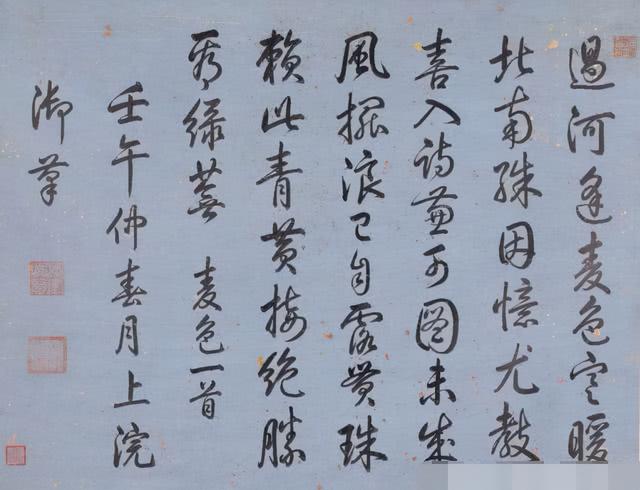 過河逢麥色寒暖
北南殊因憶尤教
喜入詩兼可圖未成
風擺浪已自露貫珠
賴此青黄接絶勝
看緑蕪 麥色一首
壬午仲春月上浣
御筆